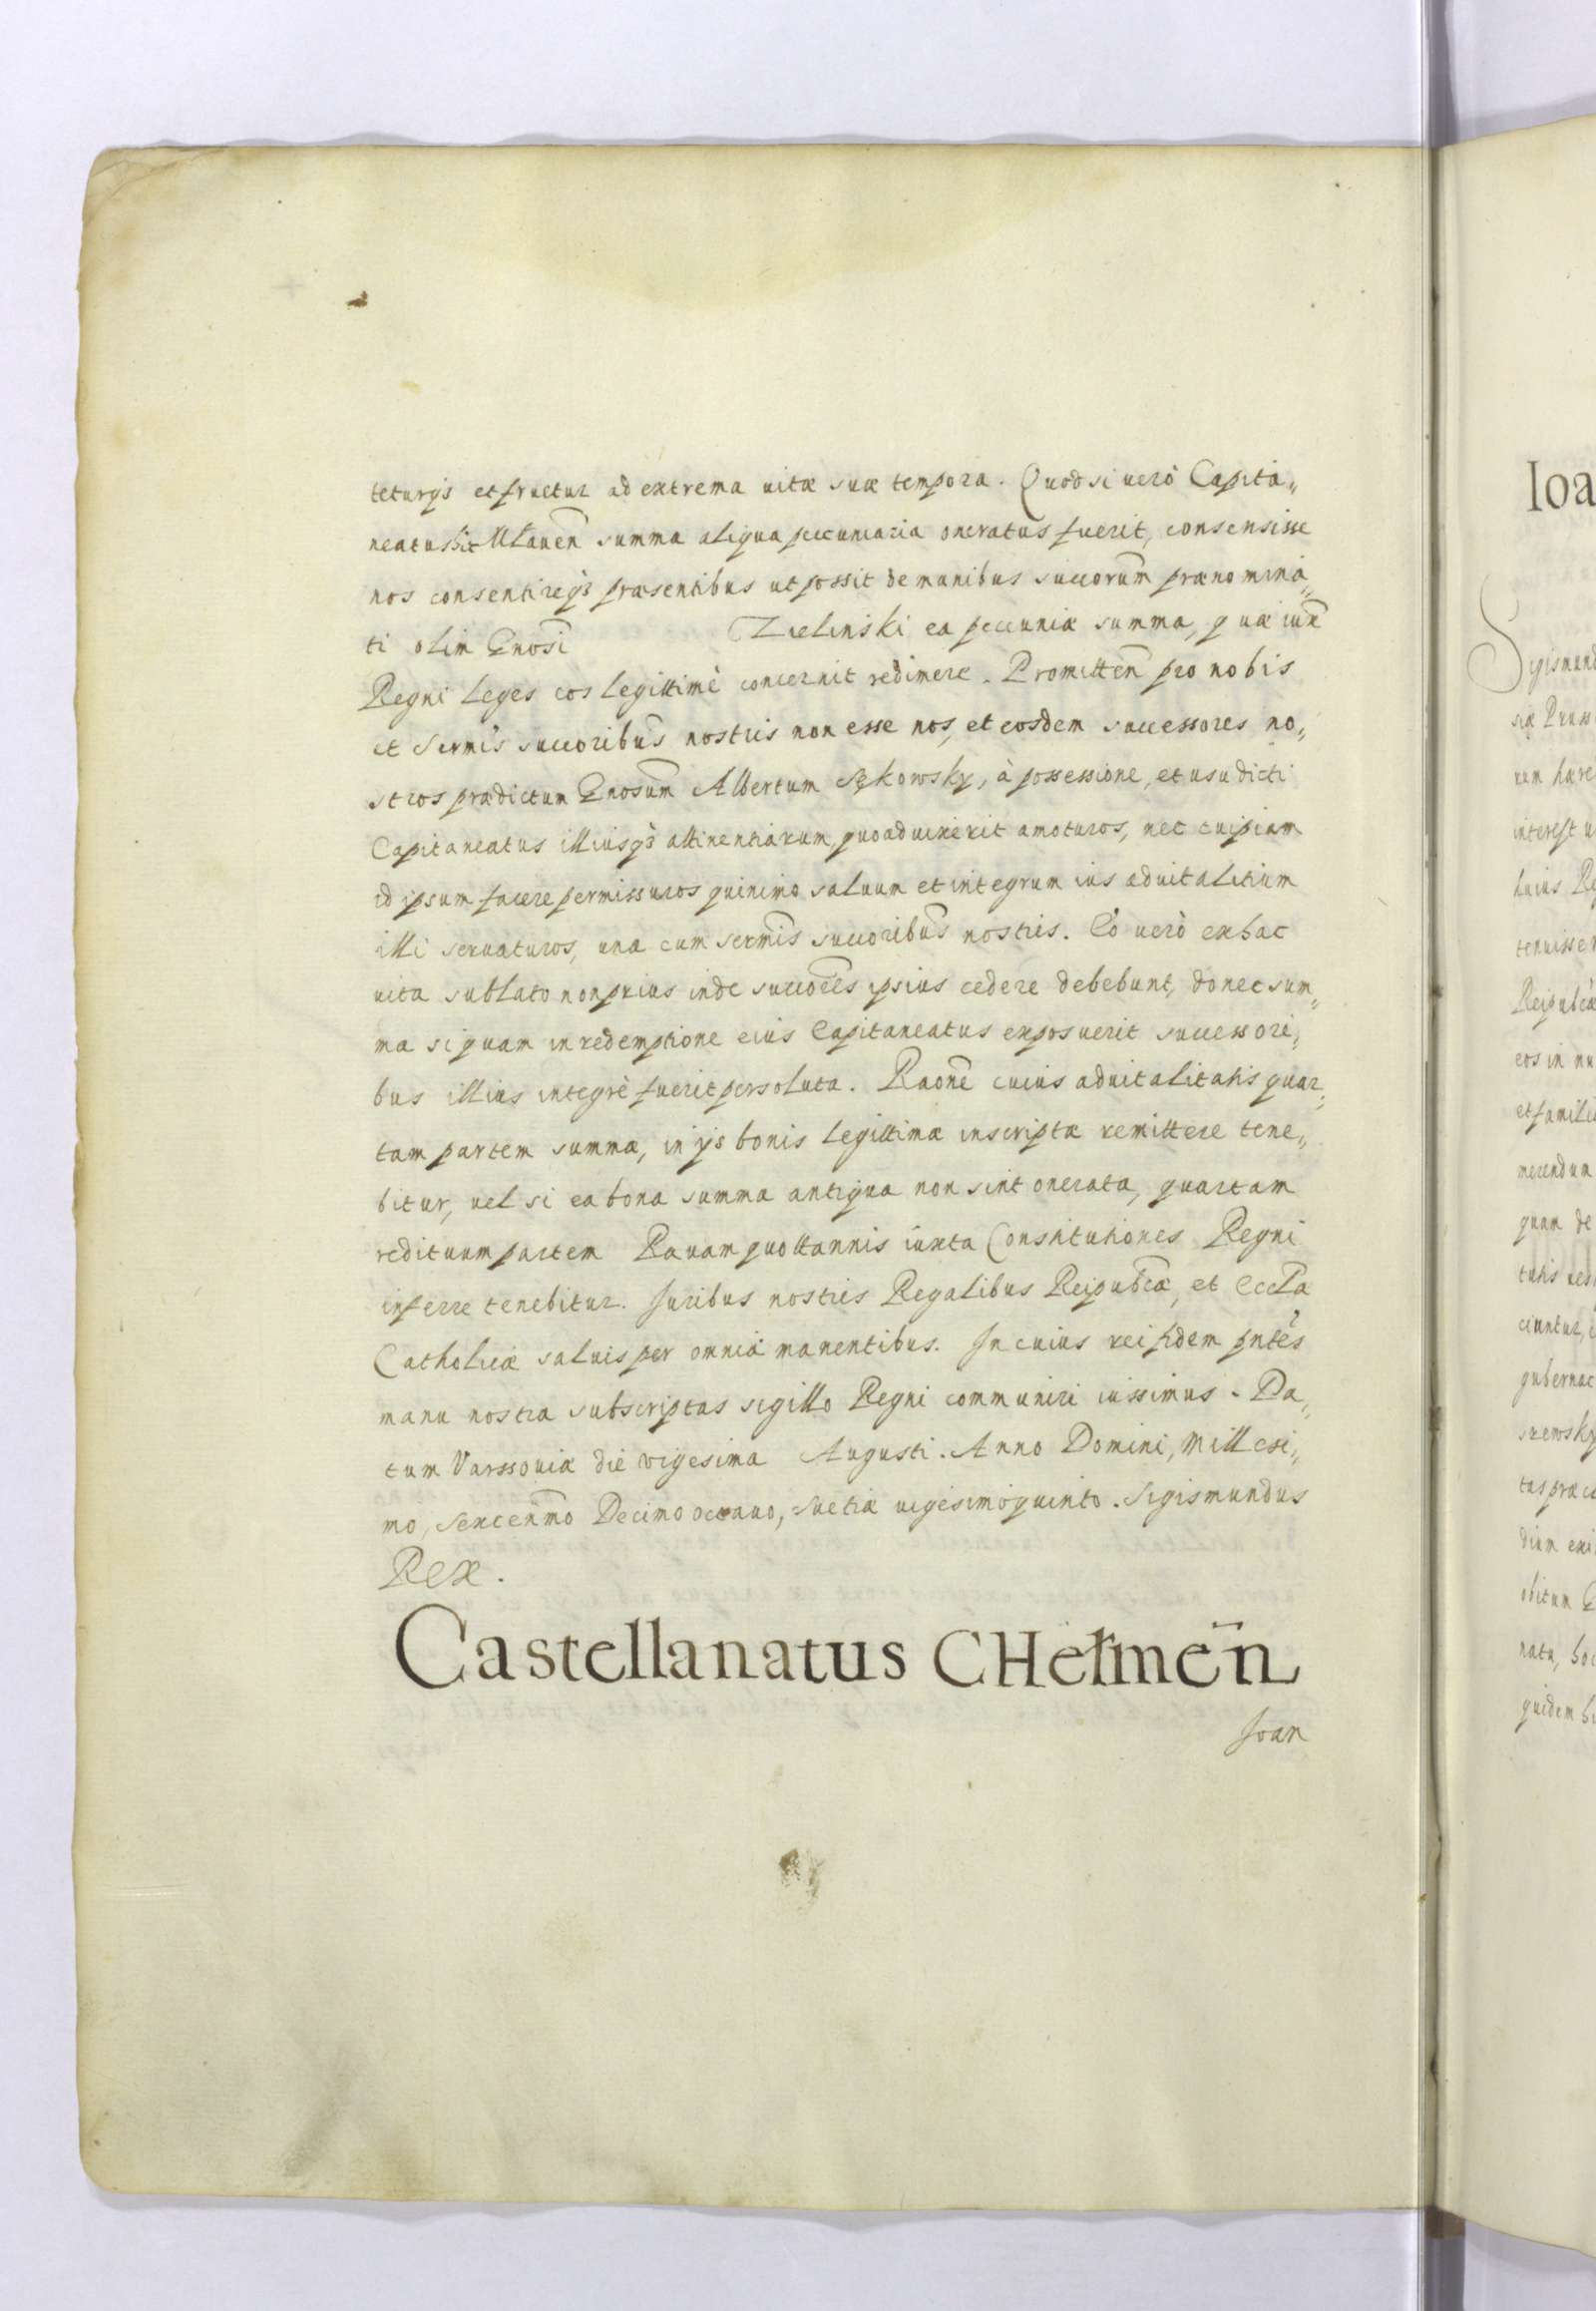 teturq̃s et fruetur ad extrema uitæ suæ tempora. Quod si uerò Capita„
neatus hic Mlauen̄ summa aliqua pecuniaria oneratus fuerit, consensisse
nos consentireq̃s præsentibus ut possit de manibus succorum̄ prænomina„
ti olim Gnosi̅ Zielinski ea pecuniæ summa, quæ iux̄
Regni leges eos legittimè concernit redimere. Promitten̄ pro nobis
et Sermi̅s succoribus̄ nostris non esse nos, et eosdem successores no„
stros prædictum Gnosum̄ Albertum Sękowsky, à possessione, et usu dicti
Capitaneatus illiusq̃s attinentiarum, quoad uixerit amoturos, nec cuipiam
id ipsum facere permissuros quinimo saluum et integrum ius aduitalitium
illi seruaturos, una cum sermi̅s succoribus̄ nostris. Eo uerò ex hac
uita sublato non prius inde succores̄ ipsius cedere debebunt, donec sum„
ma si quam in redemptione eius Capitaneatus exposuerit successori„
bus illius integrè fuerit persoluta. Raone̅ cuius aduitalitatis quar„
tam partem summæ, in ijs bonis legittimæ inscriptæ remittere tene„
bitur, uel si ea bona summa antiqua non sint onerata, quartam
redituum partem Rauam quottannis iuxta Constitutiones Regni
inferre tenebitur. Juribus nostris Regalibus Reipub̄cæ, et Eccl̄a
Catholicæ saluis per omnia manentibus. In cuius rei fidem pn̄tes
manu nostra subscriptas sigillo Regni communiri iussimus. Da„
tum Varssouiæ die vigesima Augusti. Anno Domini, Millesi„
mo, Sexcenm̄o Decimo octauo, Suetiæ uigesimoquinto. Sigismundus
Rex.
Castellanatus CHełmen̄
Joan
Ioa